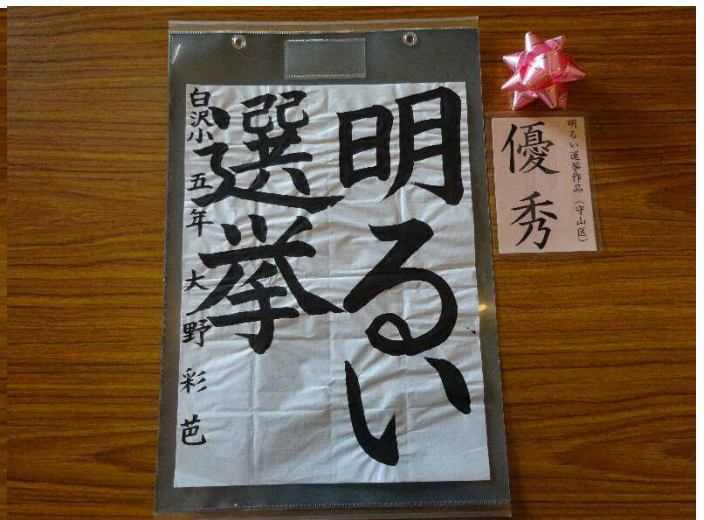 明るい
選挙
白沢小 五年 大野彩芭
明るい選挙作品(守山区)
優秀